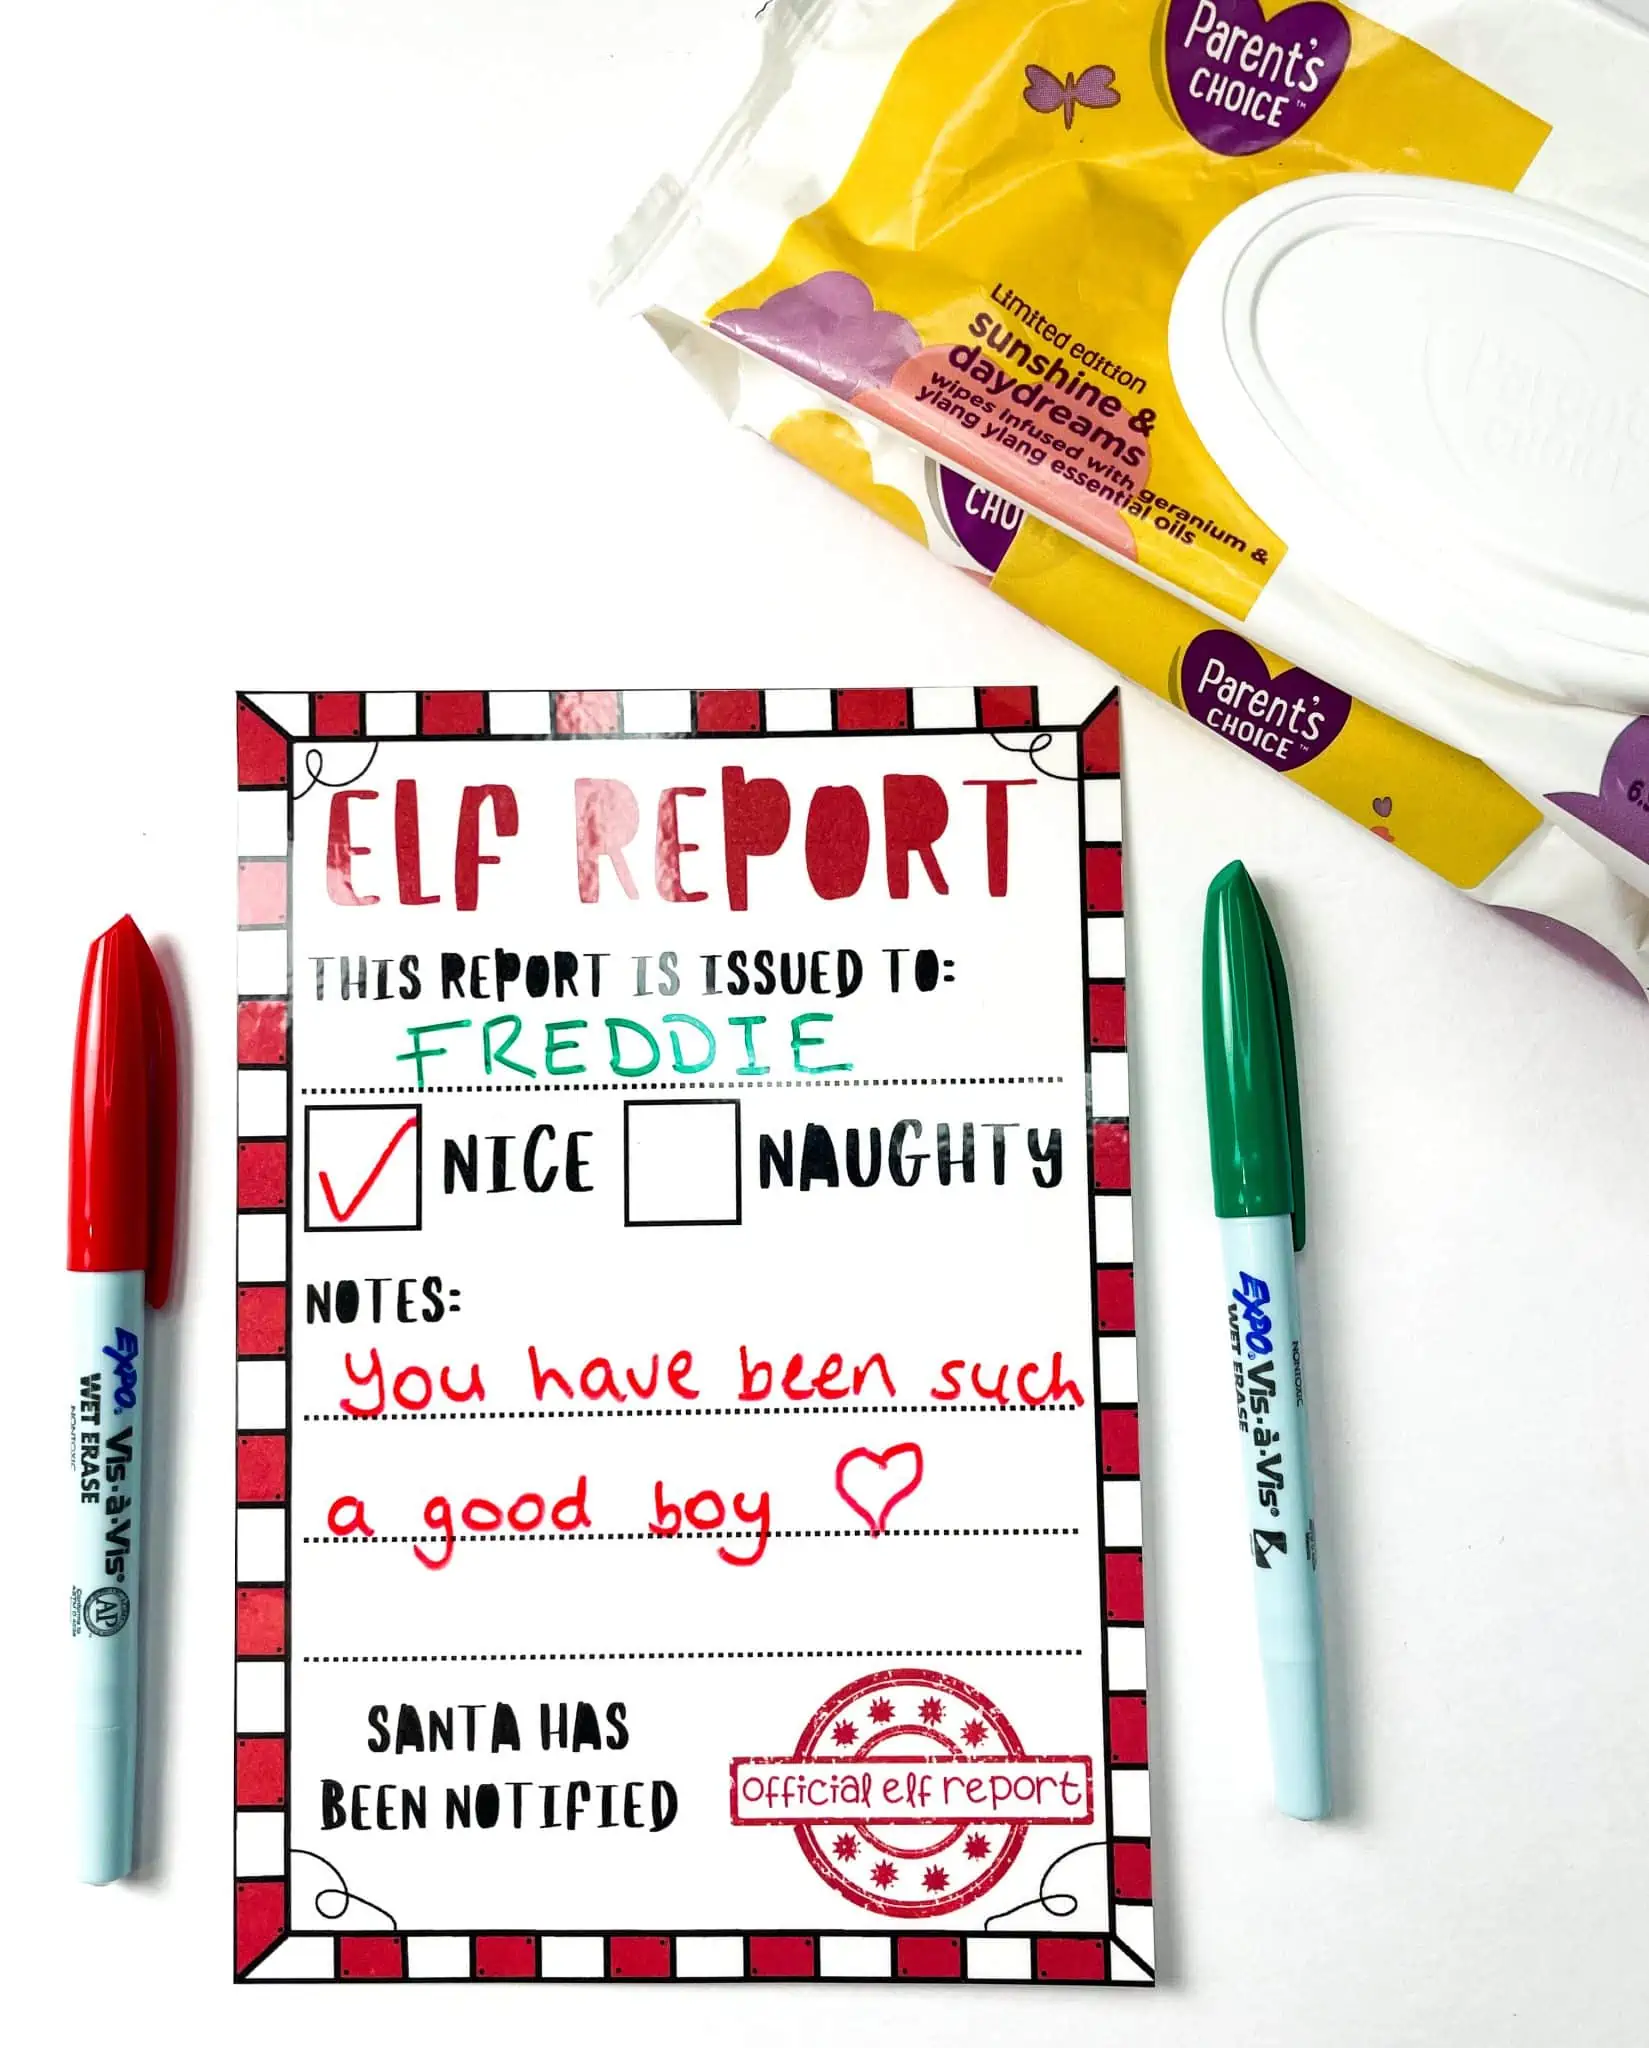 Parent's
CHOICE™
Limited edition
sunshine &
daydreams
wipes infused with geranium &
ylang ylang essential oils
CHO
Parent's
CHOICE™
ELF REPORT
THIS REPORT IS ISSUED TO:
FREDDIE
NICE NAUGHTY
NOTES:
You have been such
a good boy
SANTA HAS
BEEN NOTIFIED
official elf report
EXPO® Vis-à-Vis®
WET ERASE
NONTOXIC
AP
EXPO® Vis-à-Vis®
WET ERASE
NONTOXIC